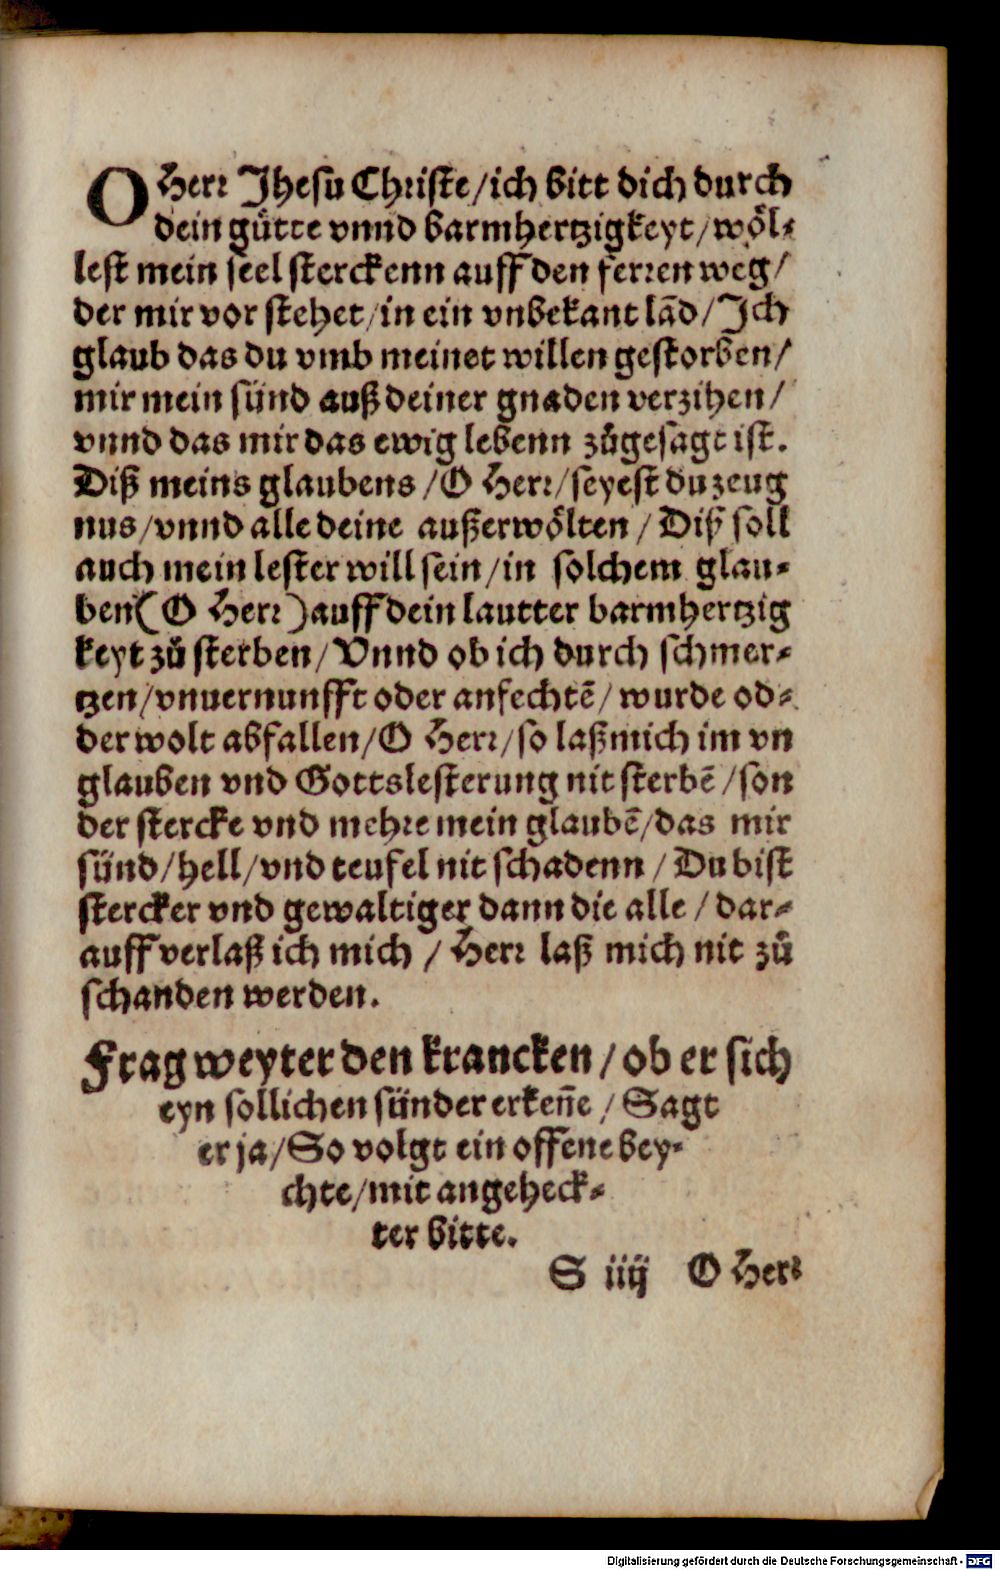 O Herr Jhesu Christe/ich bitt dich durch
dein gütte vnnd barmhertzigkeyt/wöl-
lest mein seel sterckenn auff den ferren weg/
der mir vor stehet/in ein vnbekant lãd/Ich
glaub das du vmb meinet willen gestorben/
mir mein sünd auß deiner gnaden verzihen/
vnnd das mir das ewig lebenn zůgesagt ist.
Diß meins glaubens/O Herr/seyest du zeug
nus/vnnd alle deine außerwölten/Diß soll
auch mein lester will sein/in solchem glau-
ben(O Herr)auff dein lautter barmhertzig
keyt zů sterben/Vnnd ob ich durch schmer-
tzen/vnuernunfft oder anfechtẽ/wurde od-
der wolt abfallen/O Herr/so laß mich im vn
glauben vnd Gottslesterung nit sterbẽ/son
der stercke vnd mehre mein glaubẽ/das mir
sünd/hell/vnd teufel nit schadenn/Du bist
stercker vnd gewaltiger dann die alle/dar-
auff verlaß ich mich/Herr laß mich nit zů
schanden werden.
Frag weyter den krancken/ob er sich
eyn sollichen sünder erkeñe/Sagt
er ja/So volgt ein offene bey-
chte/mit angeheck-
ter bitte.
S iiij O Herr
Digitalisierung gefördert durch die Deutsche Forschungsgemeinschaft - DFG